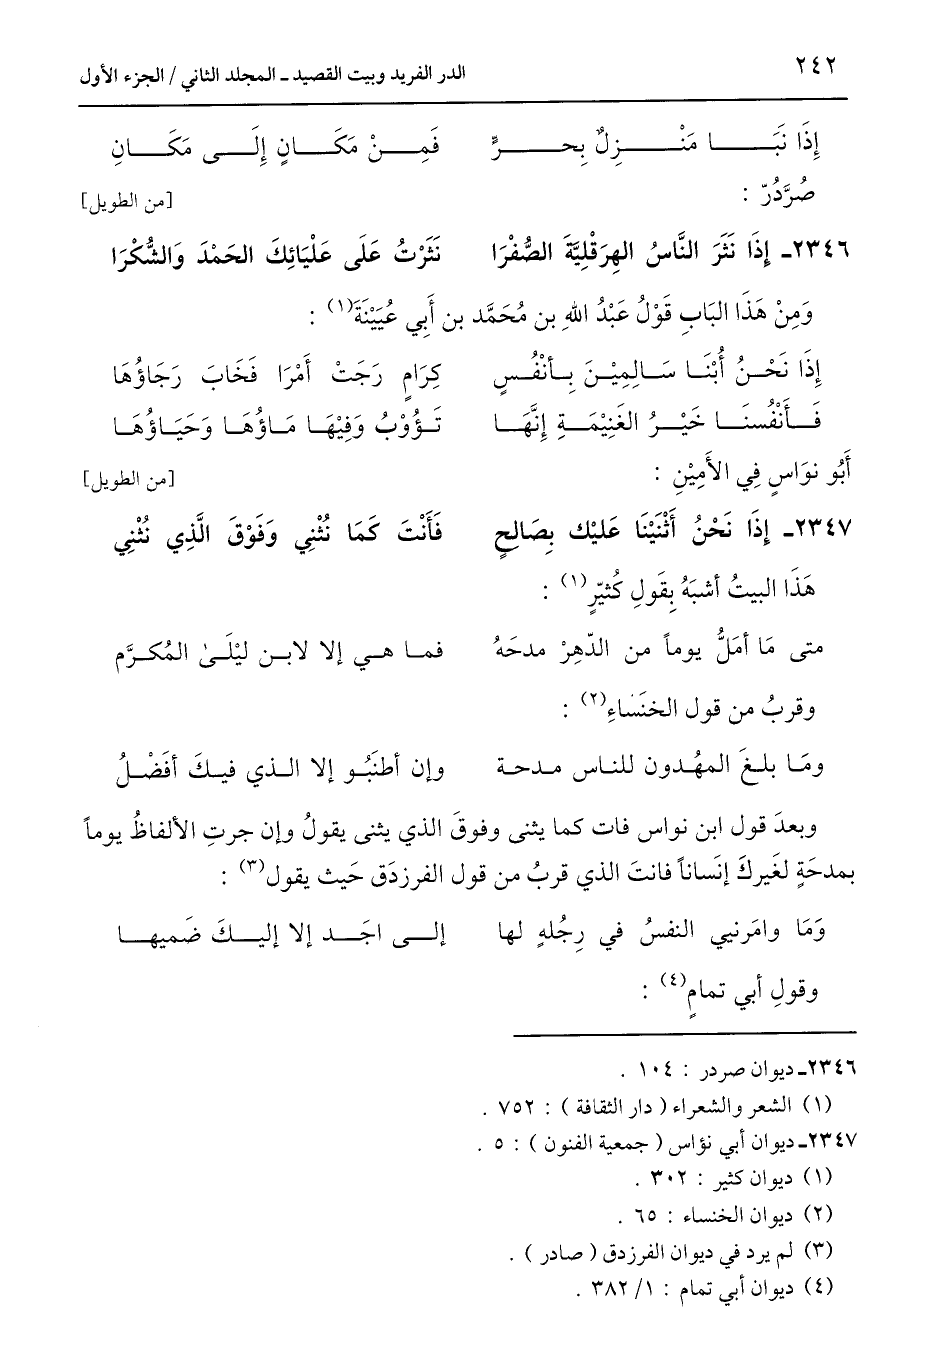 ٢٤٢ الدر الفريد وبيت القصيد ـ المجلد الثاني / الجزء الأول
إِذَا نَبَا مَنْزِلٌ بِحرٍّ فَمِنْ مَكَانٍ إِلَى مَكَانِ
صُرَّدُرّ : [من الطويل]
٢٣٤٦ـ إِذَا نَثَرَ النَّاسُ الهِرَقْلِيَّةَ الصُّفْرَا نَثَرْتُ عَلَى عَلْيَائِكَ الحَمْدَ وَالشُّكْرَا
وَمِنْ هَذَا البَابِ قَوْلُ عَبْدُ اللهِ بن مُحَمَّد بن أَبِي عُيَيْنَةَ(١) :
إِذَا نَحْنُ أُبْنَا سَالِمِيْنَ بِأَنْفُسٍ كِرَامٍ رَجَتْ أَمْرًا فَخَابَ رَجَاؤُهَا
فَأَنْفُسنَا خَيْرُ الغَنِيْمَةِ إِنَّهَا تَؤُوْبُ وَفِيْهَا مَاؤُهَا وَحَيَاؤُهَا
أَبُو نوَاسٍ فِي الأَمِيْنِ : [من الطويل]
٢٣٤٧ـ إِذَا نَحْنُ أَثْنَيْنَا عَلَيْكَ بِصَالِحٍ فَأَنْتَ كَمَا نُثْنِي وَفَوْقَ الَّذِي نُثْنِي
هَذَا البيتُ أشبَهُ بِقَولِ كُثيّرٍ(١) :
متى مَا أمَلُّ يوماً من الدّهِرْ مدحَهُ فما هي إلا لابن ليْلَىٰ المُكرَّم
وقربُ من قول الخنَساءِ(٢) :
ومَا بلغَ المهُدون للناس مدحة وإن أطنَبُو إلا الذي فيكَ أفَضْلُ
وبعدَ قول ابن نواس فات كما يثنى وفوقَ الذي يثنى يقولُ وإن جرتِ الألفاظُ يوماً
بمدحَةٍ لغَيركَ إنَساناً فانتَ الذي قربُ من قول الفرزدَق حَيث يقول(٣) :
وَمَا وامَرنيي النفسُ في رِجُلهٍ لها إلى اجَد إلا إليكَ ضَميها
وقولِ أبي تمامٍ(٤) :
٢٣٤٦ـ ديوان صردر : ١٠٤ .
(١) الشعر والشعراء ( دار الثقافة ) : ٧٥٢ .
٢٣٤٧ـ ديوان أبي نؤاس ( جمعية الفنون ) : ٥ .
(١) ديوان كثير : ٣٠٢ .
(٢) ديوان الخنساء : ٦٥ .
(٣) لم يرد في ديوان الفرزدق ( صادر ) .
(٤) ديوان أبي تمام : ١/ ٣٨٢ .